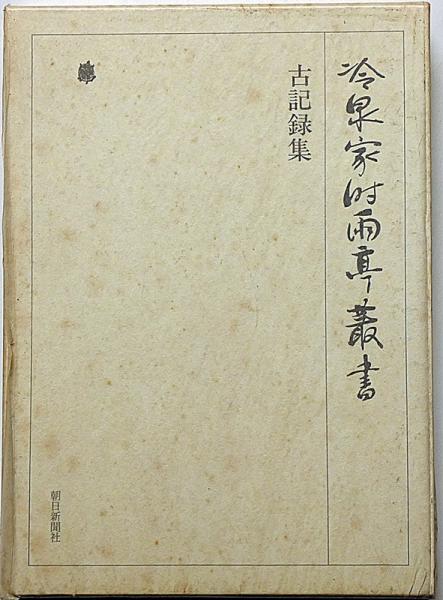 冷泉家时雨亭叢書
古記録集
朝日新聞社